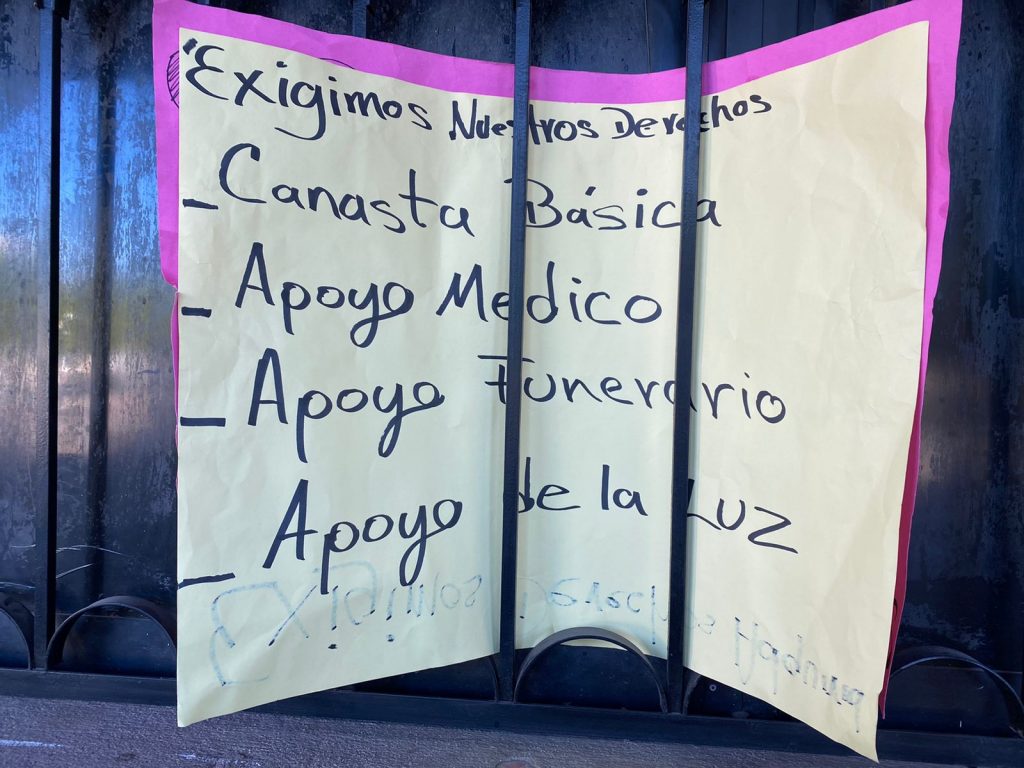 "Exigimos Nuestros Derechos
- Canasta Básica
- Apoyo Medico
- Apoyo Funerario
- Apoyo de la Luz